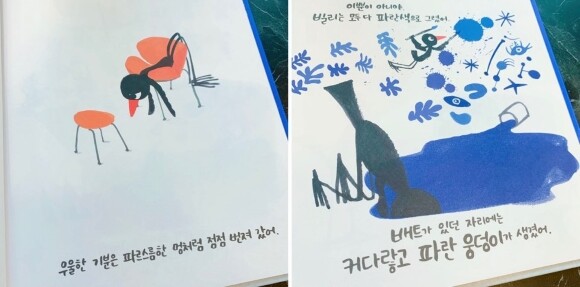 우울한 기분은 파르스름한 멍처럼 점점 번져 갔어.
이뿐이 아니야
빌리는 모두 다 파란색으로 그렸어.
배트가 있던 자리에는
커다랗고 파란 웅덩이가 생겼어.